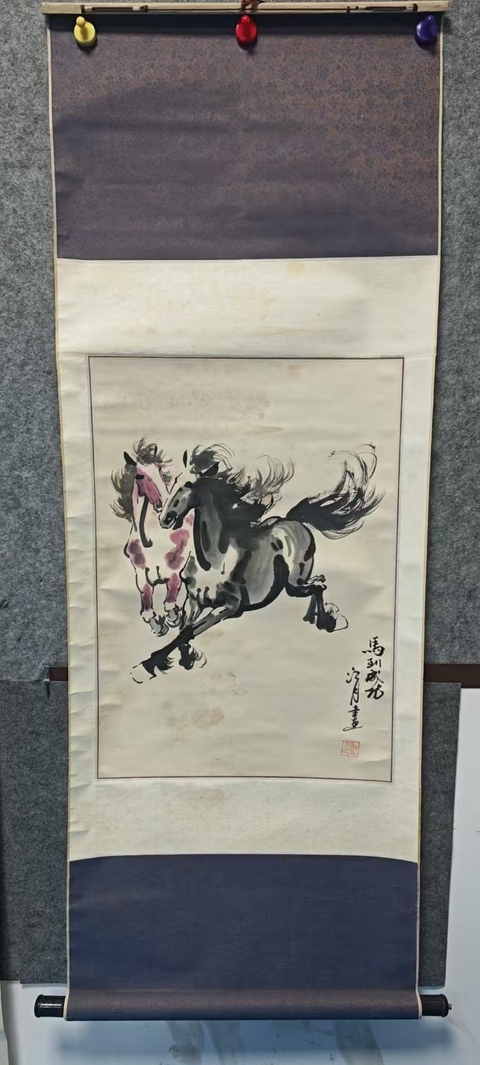 馬到成功
江月畫